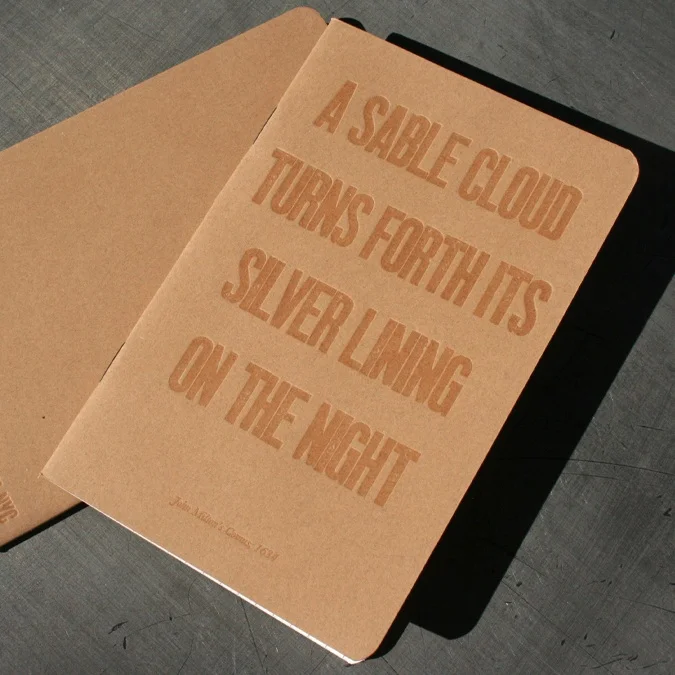 A SABLE CLOUD
TURNS FORTH ITS
SILVER LINING
ON THE NIGHT
John Milton's Comus, 1634
NYC